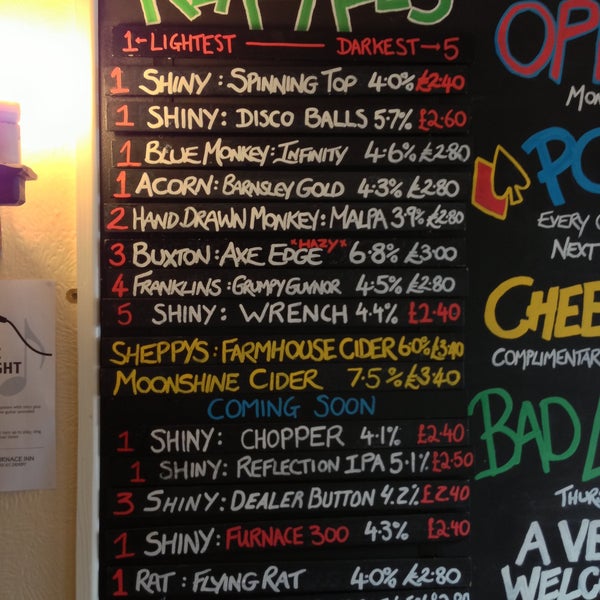 REAL ALES
1←LIGHTEST —— DARKEST→5
1 SHINY: SPINNING TOP 4.0% £2.40
1 SHINY: DISCO BALLS 5.7% £2.60
1 BLUE MONKEY: INFINITY 4.6% £2.80
1 ACORN: BARNSLEY GOLD 4.3% £2.80
2 HAND DRAWN MONKEY: MALPA 3.9% £2.80
3 BUXTON: AXE EDGE *HAZY* 6.8% £3.00
4 FRANKLINS: GRUMPY GUVNOR 4.5% £2.80
5 SHINY: WRENCH 4.4% £2.40
SHEPPYS: FARMHOUSE CIDER 6.0% £3.40
MOONSHINE CIDER 7.5% £3.40
COMING SOON
1 SHINY: CHOPPER 4.1% £2.40
1 SHINY: REFLECTION IPA 5.1% £2.50
3 SHINY: DEALER BUTTON 4.2% £2.40
1 SHINY: FURNACE 300 4.3% £2.40
1 RAT: FLYING RAT 4.0% £2.80
OPE
MON
PO
EVERY
NEXT
CHEE
COMPLIMENTAR
BAD
THURS
A VE
WELCO
GHT
FURNACE INN